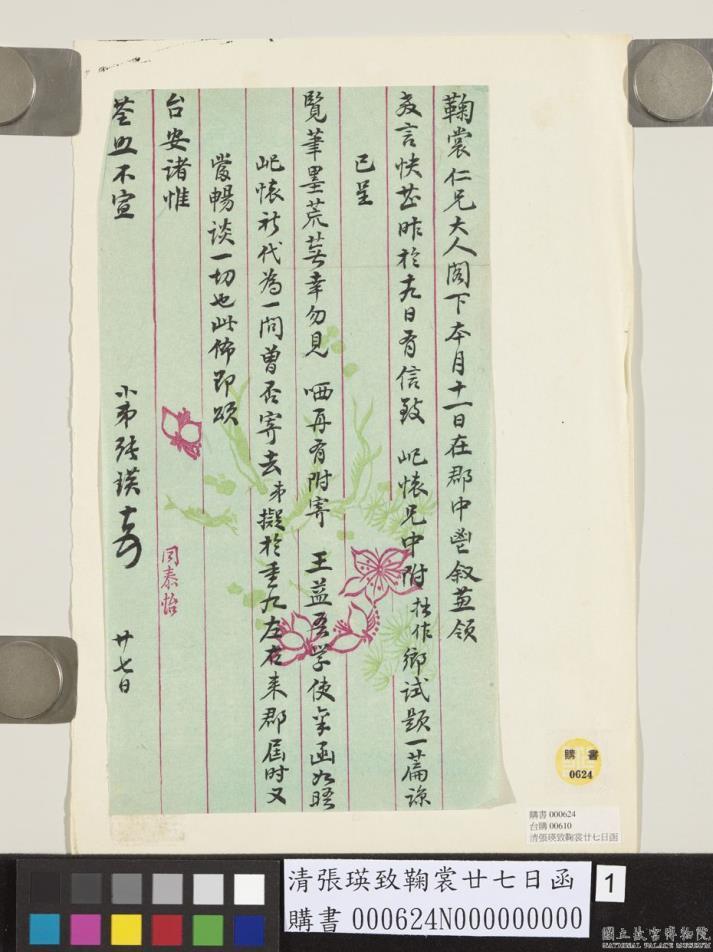 鞠裳仁兄大人閣下本月十一日在郡中邕叙藎領
教言快甚昨於九日有信致 屺懷兄中附拙作鄉試題一篇諒
已呈
覽筆墨荒蕪幸勿見 哂再有附寄 王益吾學使 函如晤
屺懷祈代為一問曾否寄去弟擬於重九左右來郡屆時又
當暢談一切也此佈即頌
台安諸惟
荃照不宣
小弟張瑛
廿七日
同泰怡
購書
0624
購書 000624
台購 00610
清張瑛致鞠裳廿七日函
清張瑛致鞠裳廿七日函
購書 000624N000000000
1
國立故宮博物院
NATIONAL PALACE MUSEUM